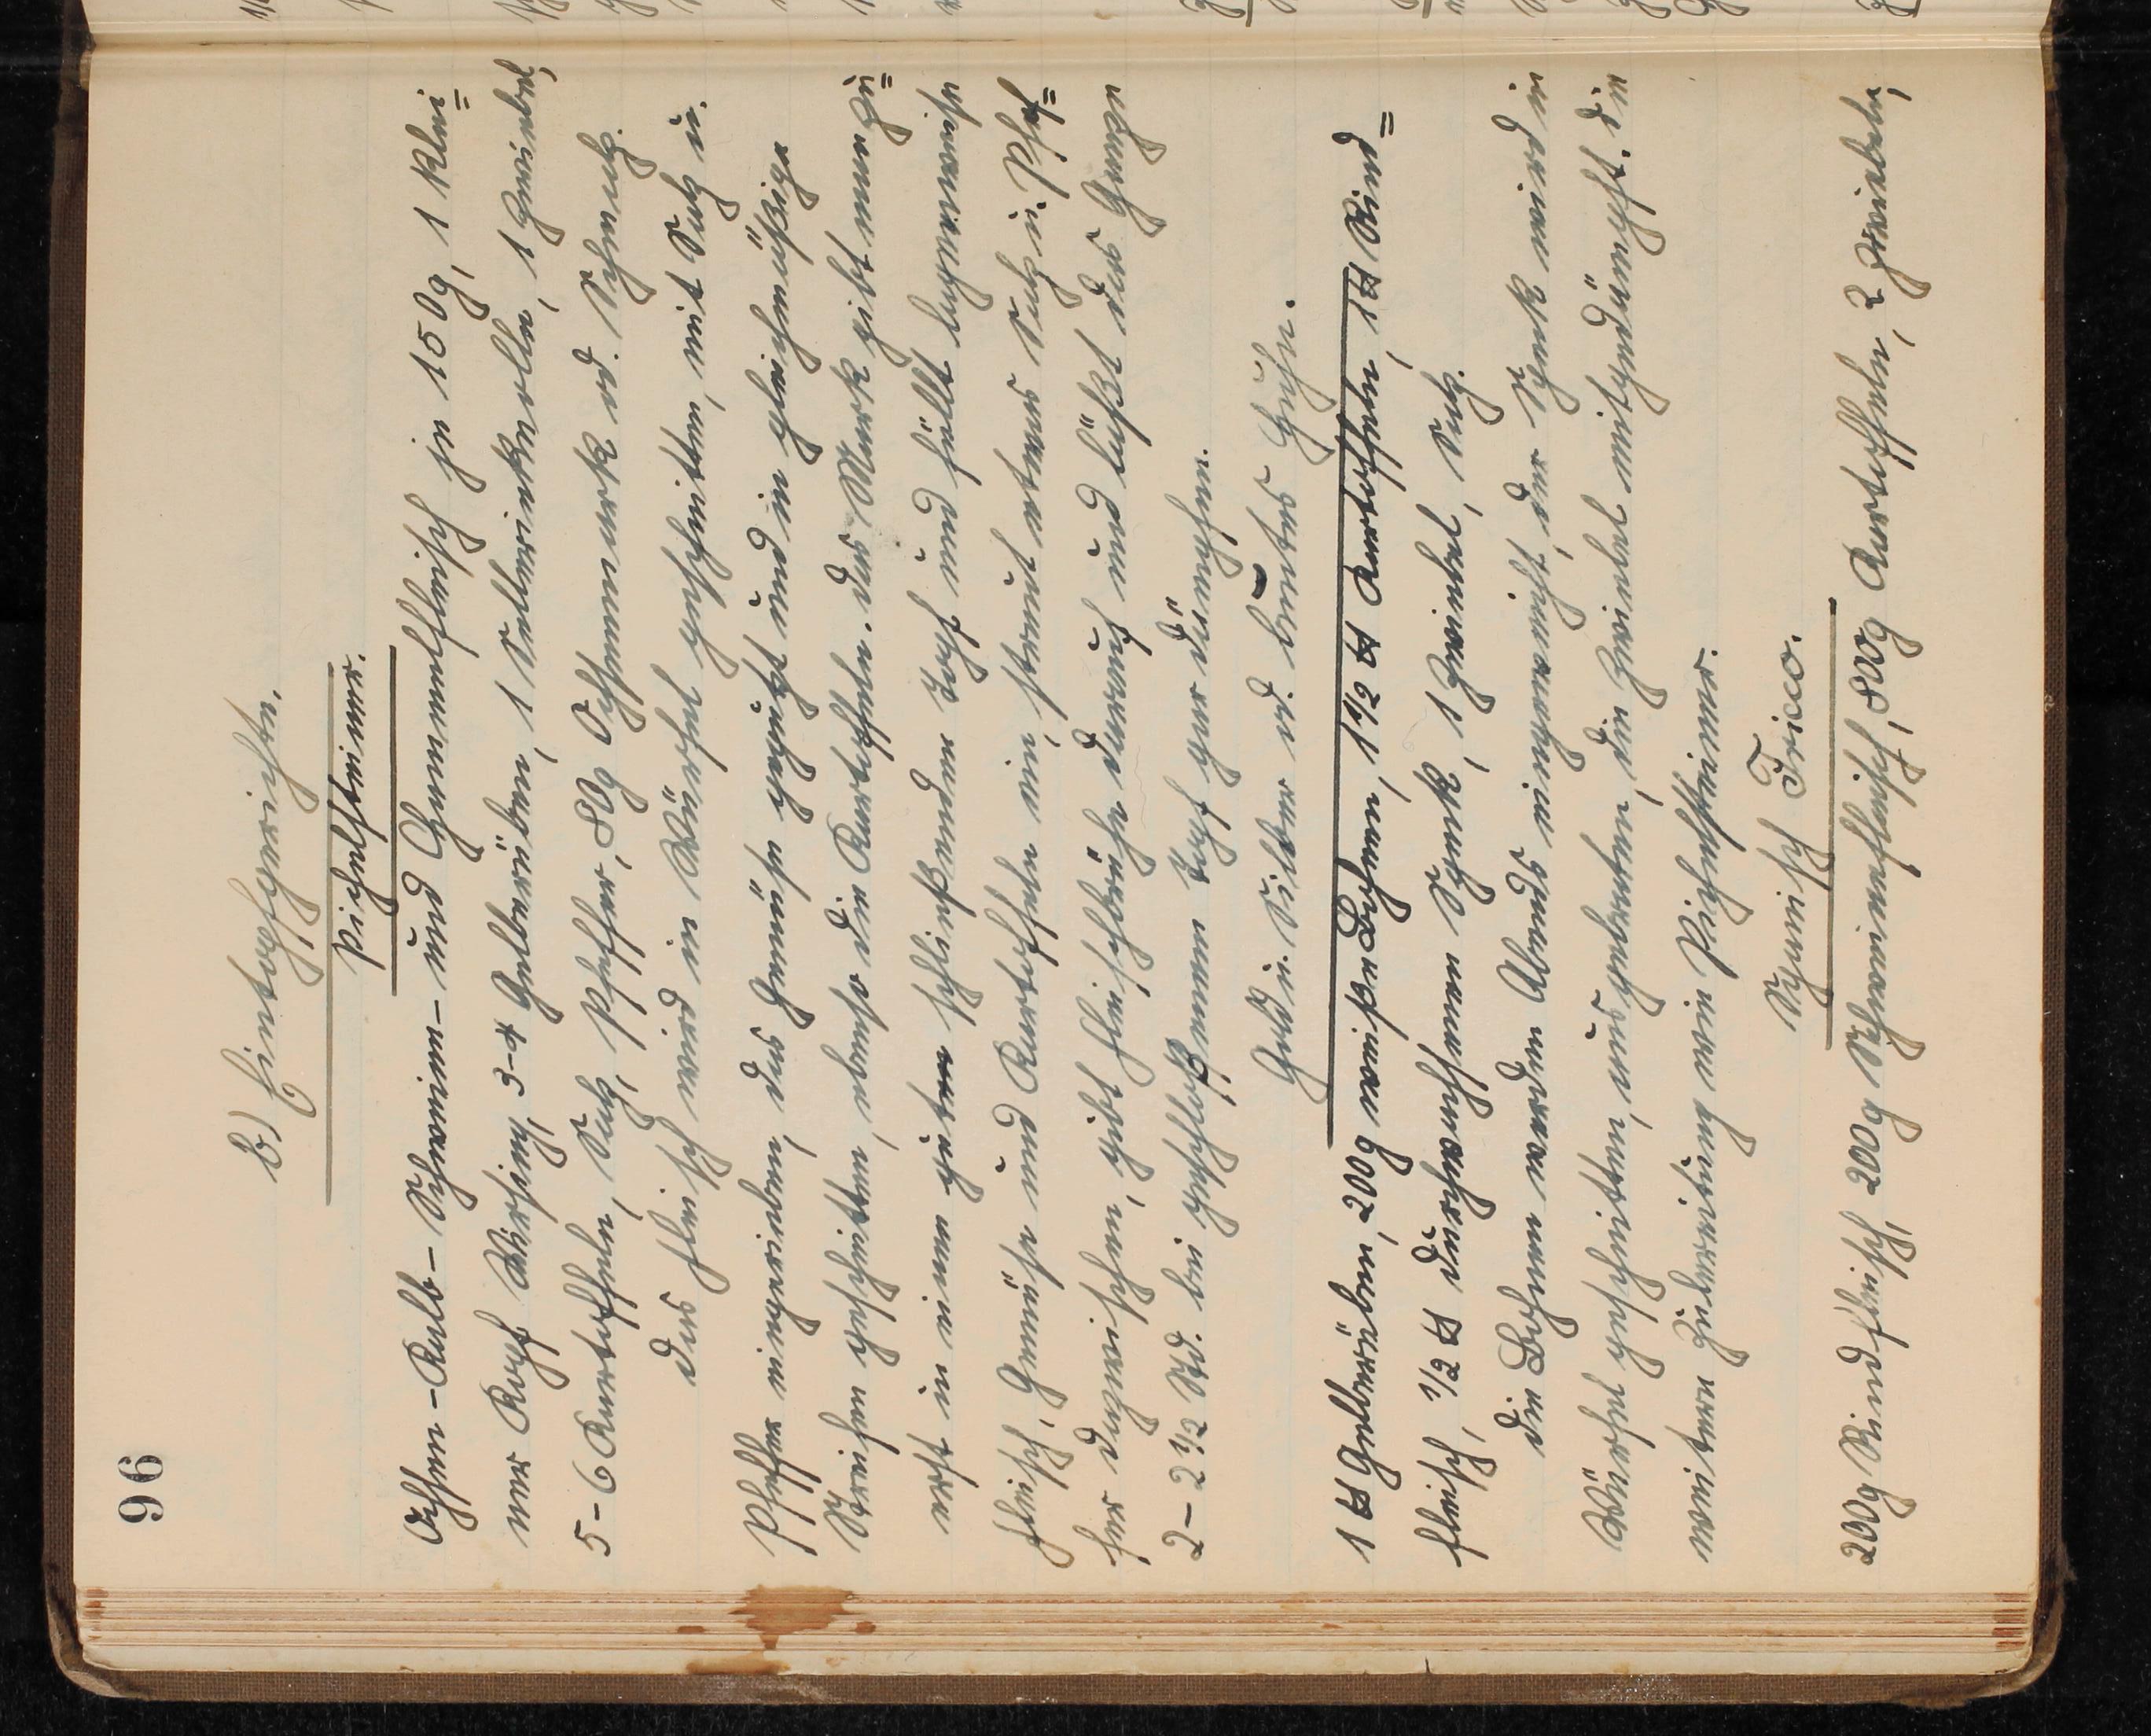 96
B) Eintopfgerichte.
Pichelsteiner.
Ochsen-Kalb-Schweine- und Hammelfleisch je 150g, 1 klei=
ner Kopf Wirsing, 3-4 Gelberüben, 1 Sellerieknolle, 1 Zwiebel,
5-6 Kartoffeln, Salz, Pfeffer, 80g Ochsenmark od. Schmalz.
Das Fleisch wird in Würfel geschnitten, mit Salz u.
Pfeffer eingerieben, das Gemüse geputzt und in gleichmäßige
Streifen geschnitten, ebenso die Kartoffeln. Das Mark gibt man zu=
erst in einen guten schließenden Topf und füllt lagenweise
Fleisch, Gemüse und Kartoffeln ein, streut etwas Salz u. Pfef=
fer dazwischen, gibt Fleischbrühe darauf und läßt das Ganze
2-2½ Std. bei geschloßenem Topf gar dämpfen.
Gold u. Silber od. buntes Huhn.
1 ℔ Gelberüben, 200g weiße Bohnen, 1½ ℔ Kartoffeln, 1 ℔ Rind=
fleisch, ½ ℔ durchwachsenen Speck, 1 Zwiebel, Salz.
Die Bohnen werden Abends eingeweicht, der Speck wird in
Würfel geschnitten, ausgebraten, die Zwiebel mitgedämpft. Die
weitere Zubereitung wie Pichelsteiner.
Spanisch Fricco.
200g Rindfleisch, 200g Schweinefleisch, 800g Kartoffeln, 2 Zwiebeln,